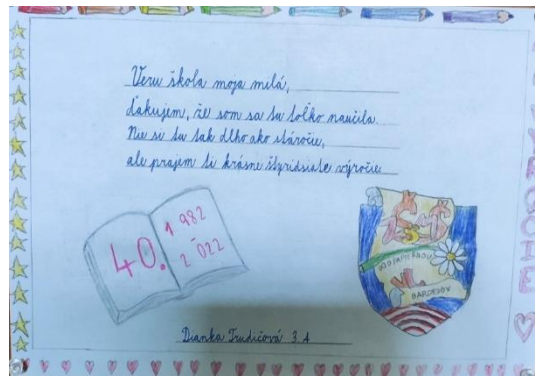 Veru škola moja milá,
ďakujem, že som sa tu toľko naučila.
Nie si tu tak dlho ako stáročie,
ale prajem ti krásne štyridsiate výročie
40.
1982
2022
BARDEJOV
Dianka Trudičová 3.A